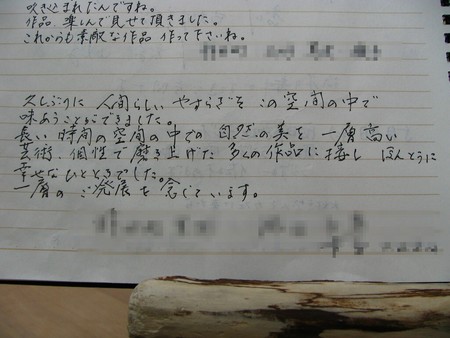 吹きこまれたんですね。
作品 楽しんで見せて頂きました。
これからも素敵な作品 作って下さいね。
久しぶりに 人間らしい やすらぎを この空間の中で
味あうことができました。
長い時間の空間の中での 自然の美を 一層高い
芸術、個性で 磨き上げた 多くの作品に接し ほんとうに
幸せなひとときでした。
一層の ご発展を 念じています。